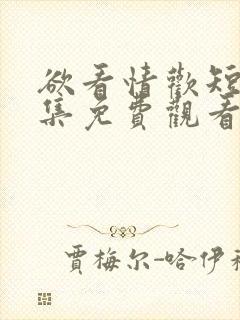 欲看情歡短
集免費觀看
賈梅尔-哈伊科